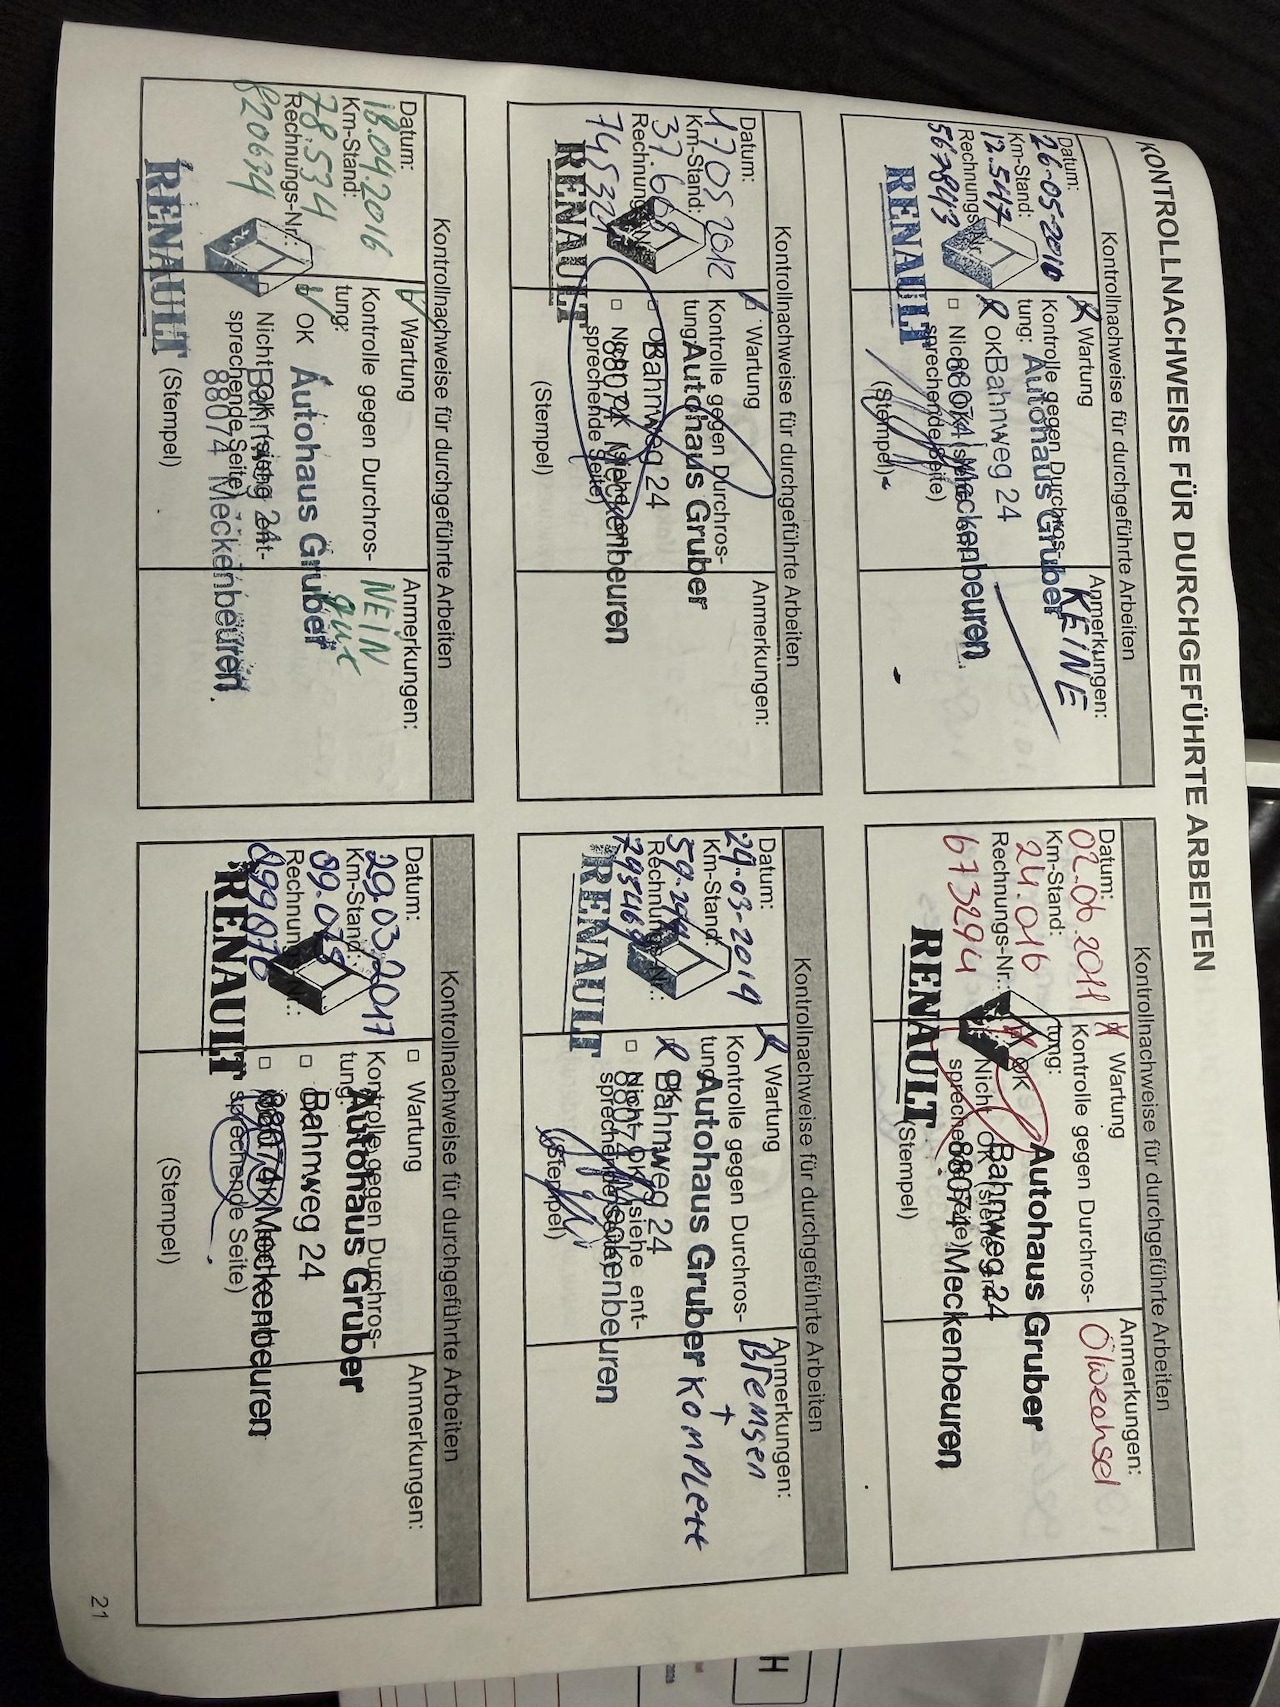 KONTROLLNACHWEISE FÜR DURCHGEFÜHRTE ARBEITEN
Kontrollnachweise für durchgeführte Arbeiten
Datum:
26-05-2010
Km-Stand:
12.547
Rechnungs-Nr.:
567843
Wartung
Kontrolle gegen Durchros-
tung:
OK
Nicht OK (siehe ent-
sprechende Seite)
(Stempel)
Anmerkungen:
KEINE
RENAULT
Autohaus Gruber
Bahnweg 24
88074 Meckenbeuren
Kontrollnachweise für durchgeführte Arbeiten
Datum:
02.06.2011
Km-Stand:
24.016
Rechnungs-Nr.:
673294
Wartung
Kontrolle gegen Durchros-
tung:
OK
Nicht OK (siehe ent-
sprechende Seite)
(Stempel)
Anmerkungen:
Ölwechsel
RENAULT
Autohaus Gruber
Bahnweg 24
88074 Meckenbeuren
Kontrollnachweise für durchgeführte Arbeiten
Datum:
Km-Stand:
Rechnungs-Nr.:
745321
Wartung
Kontrolle gegen Durchros-
tung:
OK
Nicht OK (siehe ent-
sprechende Seite)
(Stempel)
Anmerkungen:
RENAULT
Autohaus Gruber
Bahnweg 24
88074 Meckenbeuren
Kontrollnachweise für durchgeführte Arbeiten
Datum:
Km-Stand:
Rechnungs-Nr.:
Wartung
Kontrolle gegen Durchros-
tung:
OK
Nicht OK (siehe ent-
sprechende Seite)
(Stempel)
Anmerkungen:
Bremsen
+
Komplett
RENAULT
Autohaus Gruber
Bahnweg 24
88074 Meckenbeuren
Kontrollnachweise für durchgeführte Arbeiten
Datum:
18.04.2016
Km-Stand:
78.534
Rechnungs-Nr.:
820694
Wartung
Kontrolle gegen Durchros-
tung:
OK
Nicht OK (siehe ent-
sprechende Seite)
(Stempel)
Anmerkungen:
NEIN
gut
RENAULT
Autohaus Gruber
Bahnweg 24
88074 Meckenbeuren
Kontrollnachweise für durchgeführte Arbeiten
Datum:
29.03.2017
Km-Stand:
Rechnungs-Nr.:
Wartung
Kontrolle gegen Durchros-
tung:
OK
Nicht OK (siehe ent-
sprechende Seite)
(Stempel)
Anmerkungen:
RENAULT
Autohaus Gruber
Bahnweg 24
88074 Meckenbeuren
21
H